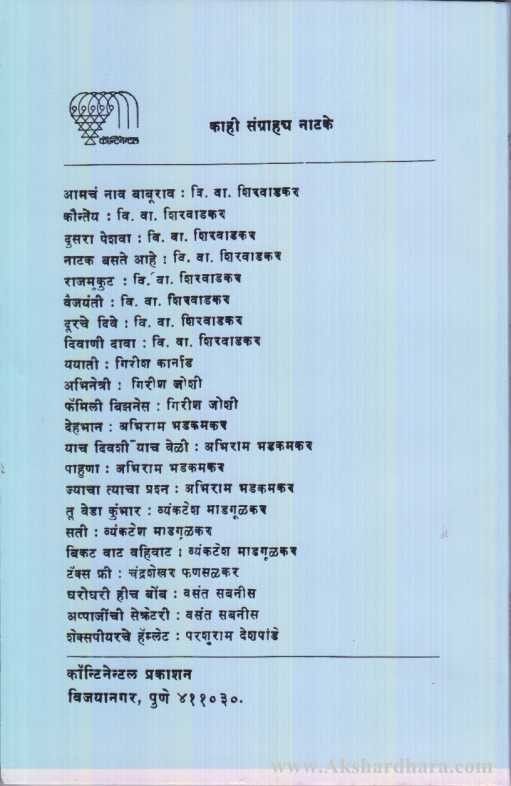 कॉन्टिनेन्टल
काही संग्राह्य नाटके
आमचं नाव बाबूराव : वि. वा. शिरवाडकर
कौन्तेय : वि. वा. शिरवाडकर
दुसरा पेशवा : वि. वा. शिरवाडकर
नाटक बसते आहे : वि. वा. शिरवाडकर
राजमुकुट : वि. वा. शिरवाडकर
वैजयंती : वि. वा. शिरवाडकर
दूरचे दिवे : वि. वा. शिरवाडकर
दिवाणी दावा : वि. वा. शिरवाडकर
ययाती : गिरीश कार्नाड
अभिनेत्री : गिरीश जोशी
फॅमिली बिझनेस : गिरीश जोशी
देहभान : अभिराम भडकमकर
याच दिवशी याच वेळी : अभिराम भडकमकर
पाहुणा : अभिराम भडकमकर
ज्याचा त्याचा प्रश्न : अभिराम भडकमकर
तू वेडा कुंभार : व्यंकटेश माडगूळकर
सती : व्यंकटेश माडगूळकर
बिकट वाट वहिवाट : व्यंकटेश माडगूळकर
टॅक्स फ्री : चंद्रशेखर फणसळकर
घरोघरी हीच बोंब : वसंत सबनीस
अप्पाजींची सेक्रेटरी : वसंत सबनीस
शेक्सपीयरचे हॅम्लेट : परशुराम देशपांडे
कॉन्टिनेन्टल प्रकाशन
विजयानगर, पुणे ४११०३०.
www.Akshardhara.com